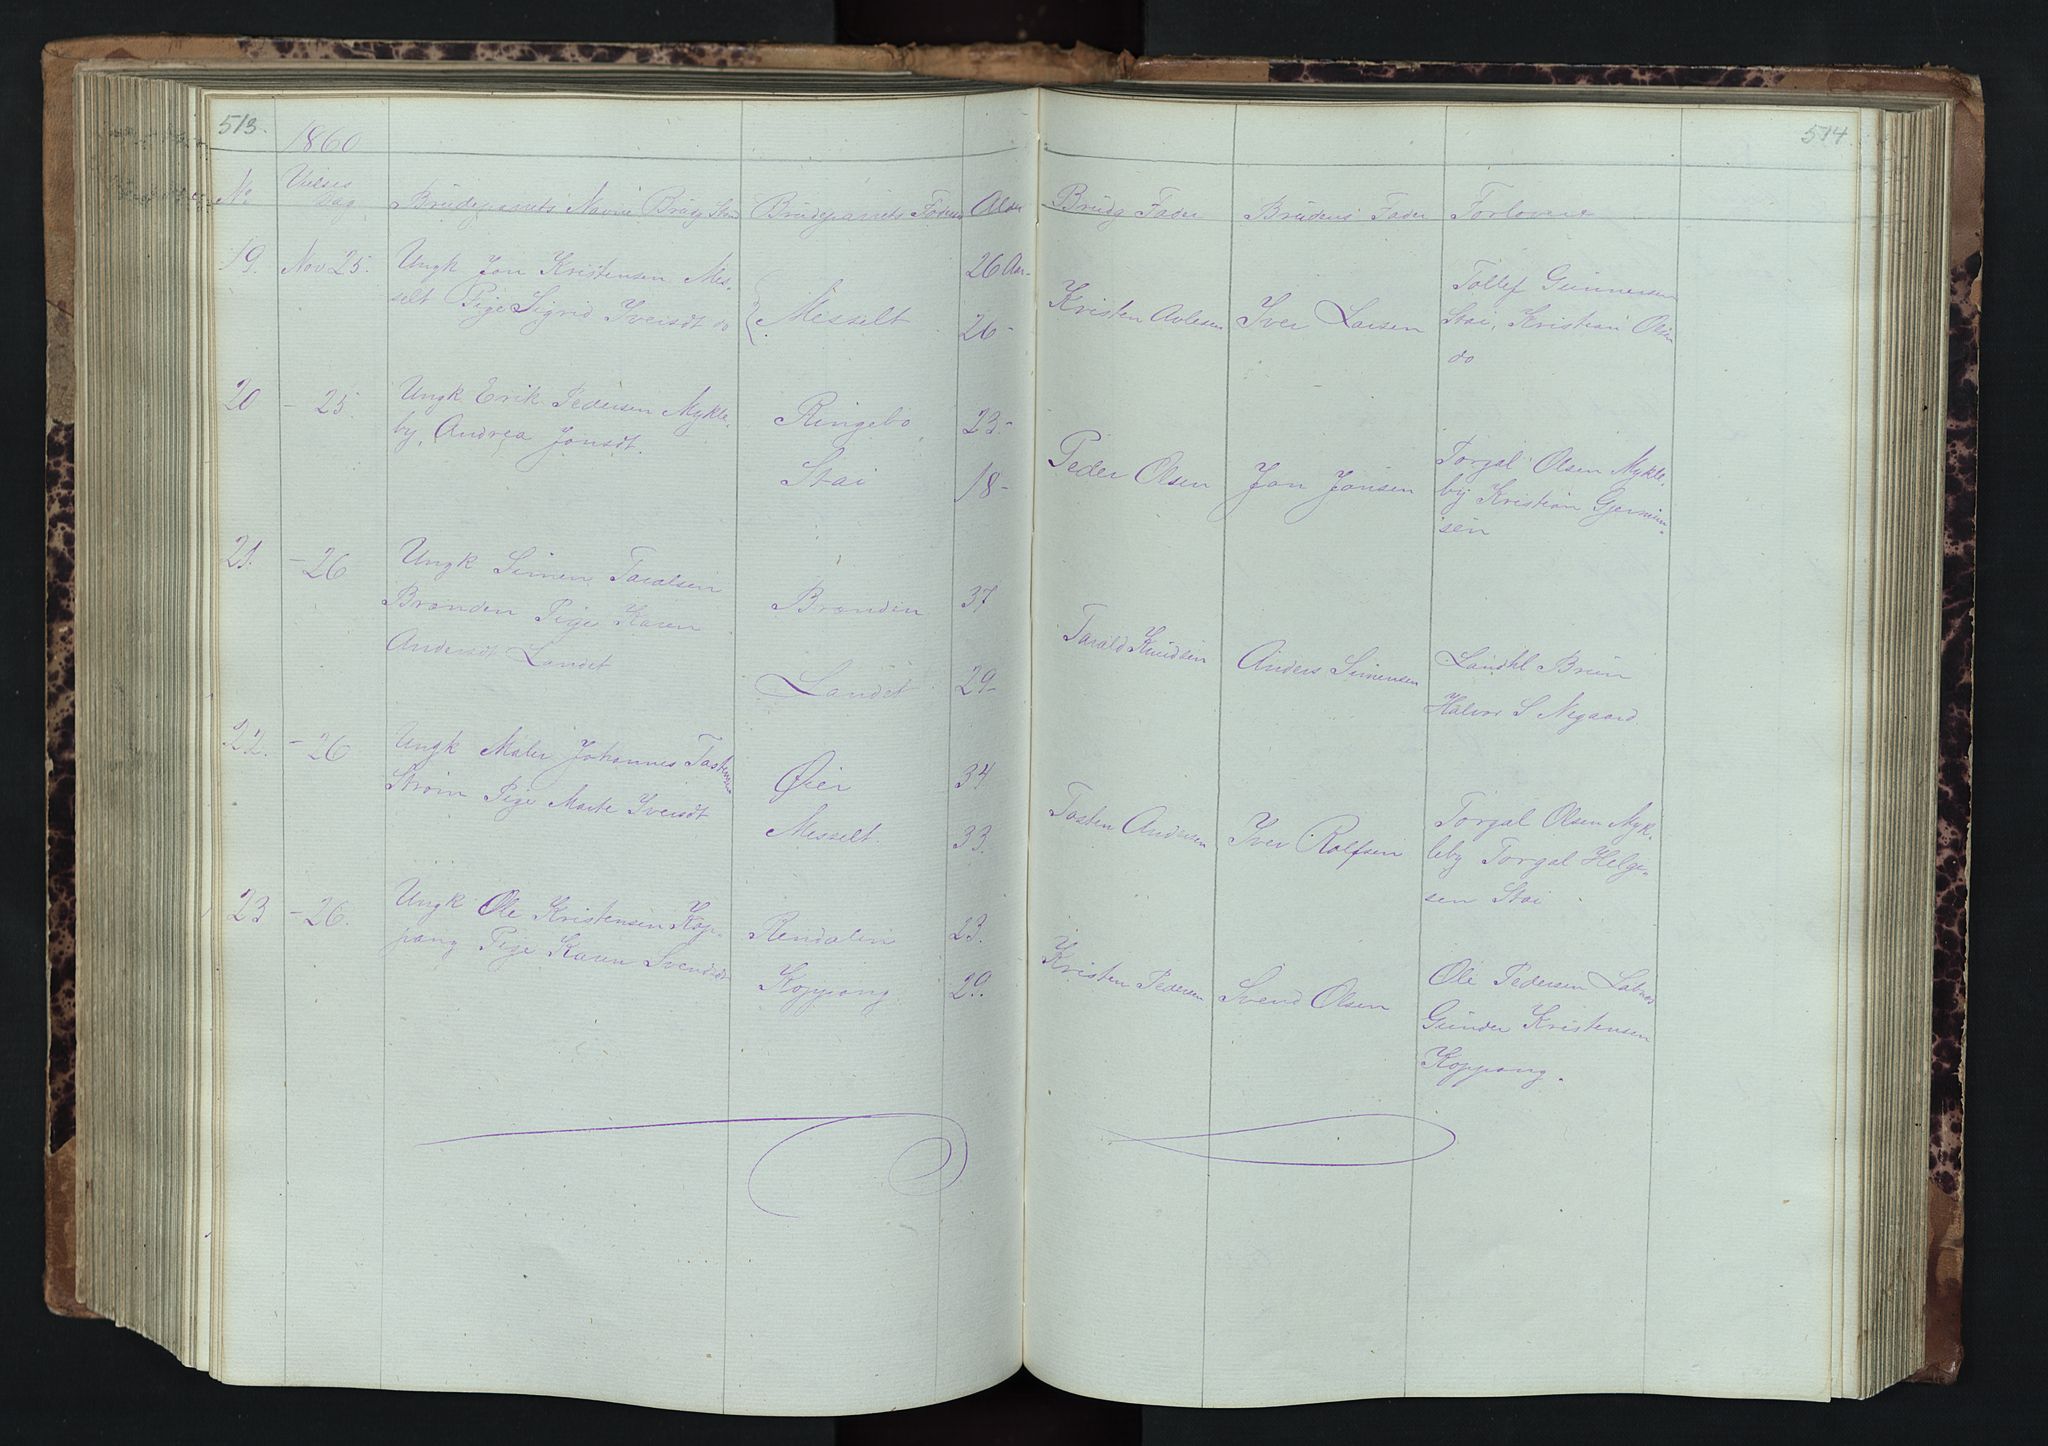 513.
1860
No
Vielses
Dag
Brudeparrets Navne
Brudeparrets
Alder
19.
Nov 25.
Ungk Jon Kristensen Mes-
selt Pige Sigrid Iversdt do
Messelt
26 Aar-
26-
20
- 25.
Ungk Erik Pedersen Mykle-
by, Andrea Jonsdt.
Ringebo
23-
Stai
18-
21.
- 26
Ungk Simen Taralsen
Brænden Pige Karen
Andersdt Landet
Brænden
37
Landet
29-
22.
- 26
Ungk Maler Johannes
Strøm Pige Marte Iversdt
Øier
34
Messelt.
33.
23
- 26.
Ungk Ole Kristensen Kop-
pang Pige Karen Svendsdt
Rendalen
23.
Koppang
29.
514
Brudg Fader
Brudens Fader
Forlovere
Kristen
Iver Larsen
Tollef Gunnersen
Stai, Kristian Olsen
do
Peder Olsen
Jon Jonsen
Torgal Olsen Mykle-
by Kristian
sen
Tarald Knudsen
Anders Simensen
Landhl Brun
Halvor S Negaard.
Tosten Andersen
Iver Rolfsen
Torgal Olsen Myk-
leby Torgal Helge-
sen Stai
Kristen Pedersen
Svend Olsen
Ole Pedersen
Gunder Kristensen
Koppang.